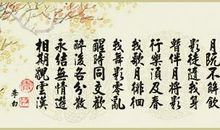 月既不解飲
影徒隨我身
暫伴月將影
行樂須及春
我歌月徘徊
我舞影零亂
醒時同交歡
醉後各分散
永結無情遊
相期邈雲漢
李白